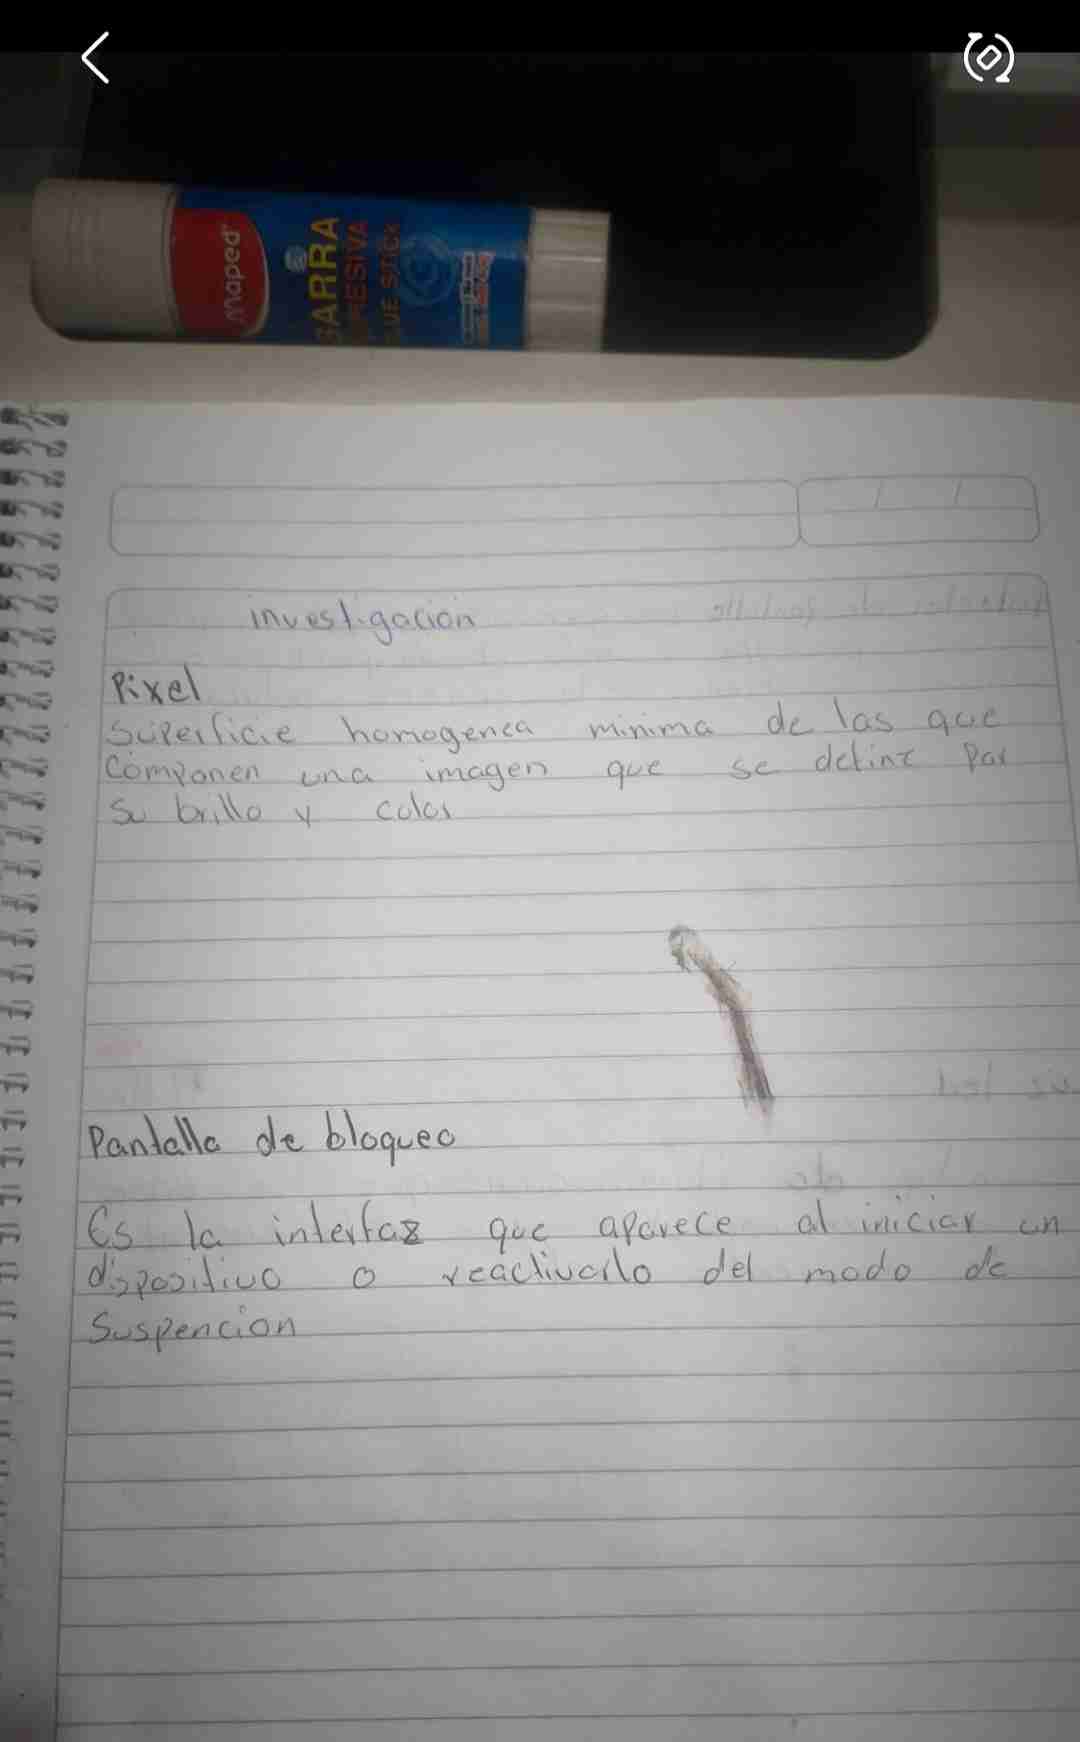 maped
GARRA
ADHESIVA
GLUE STICK
investigación
Pixel
Superficie homogenea minima de las que
Componen una imagen que se define Por
Su brillo y color
Pantalla de bloqueo
Es la interfaz que aparece al iniciar un
dispositivo o reactivarlo del modo de
Suspencion